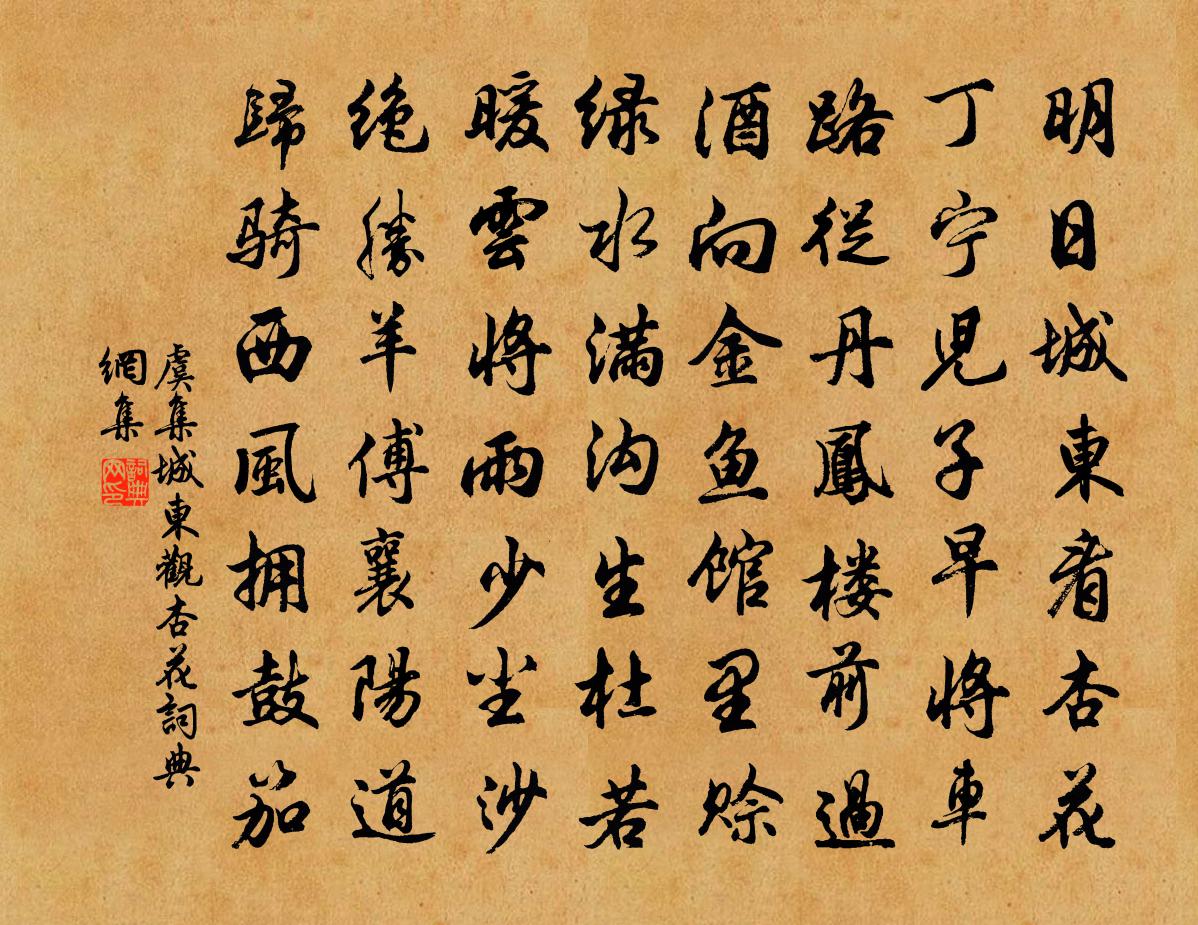 明日城東看杏花
丁宁児子早將車
路從丹鳳楼前過
酒向金魚馆里赊
绿水满沟生杜若
暖雲將雨少尘沙
绝勝羊傅襄陽道
歸骑西風拥鼓笳
虞集城東觀杏花詞典
網集
詞典
网印